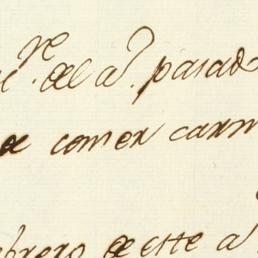 re. del a. pasado
de comer carn
febrero de este a